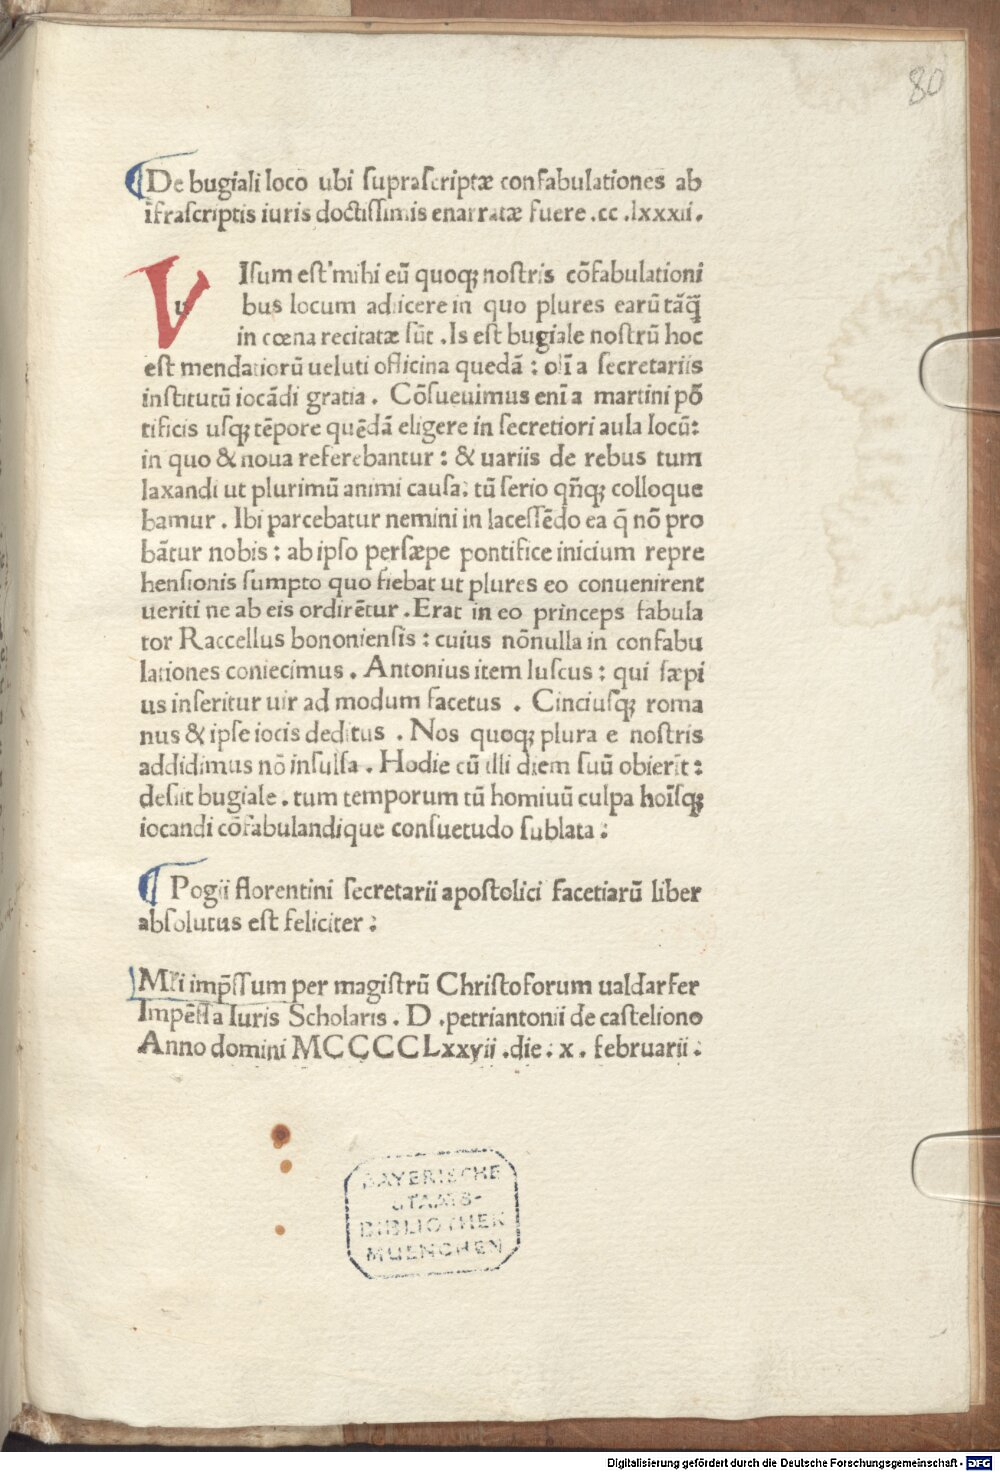 80
De bugiali loco ubi suprascriptæ confabulationes ab
ĩfrascriptis iuris doctissimis enarratæ fuere .cc .lxxxii.
V
u
Isum est mihi eũ quoqꝫ nostris cõfabulationi
bus locum adiicere in quo plures earũ tãq̃
in cœna recitatæ sũt . Is est bugiale nostrũ hoc
est mendatiorũ ueluti officina quedã : olĩ a secretariis
institutũ iocãdi gratia . Cõsueuimus enĩ a martini põ
tificis usqꝫ tẽpore quẽdã eligere in secretiori aula locũ:
in quo & noua referebantur : & uariis de rebus tum
laxandi ut plurimũ animi causa: tũ serio qñqꝫ colloque
bamur . Ibi parcebatur nemini in lacessẽdo ea q̃ nõ pro
bãtur nobis : ab ipso persæpe pontifice inicium repre
hensionis sumpto quo fiebat ut plures eo conuenirent
ueriti ne ab eis ordirẽtur . Erat in eo princeps fabula
tor Raccellus bononiensis : cuius nõnulla in confabu
lationes coniecimus . Antonius item luscus : qui sæpi
us inseritur uir ad modum facetus . Cinciusqꝫ roma
nus & ipse iocis deditus . Nos quoqꝫ plura e nostris
addidimus nõ insulsa . Hodie cũ illi diem suũ obierĩt :
desiit bugiale . tum temporum tũ homiuũ culpa hoĩsqꝫ
iocandi cõfabulandique consuetudo sublata :
Pogii florentini secretarii apostolici facetiarũ liber
absolutus est feliciter :
Mľi imp̃ssum per magistrũ Christoforum ualdarfer
Impẽssa Iuris Scholaris . D .petriantonii de casteliono
Anno domini MCCCCLxxvii .die . x . februarii :
BAYERISCHE
STAATS-
BIBLIOTHEK
MUENCHEN
Digitalisierung gefördert durch die Deutsche Forschungsgemeinschaft - DFG